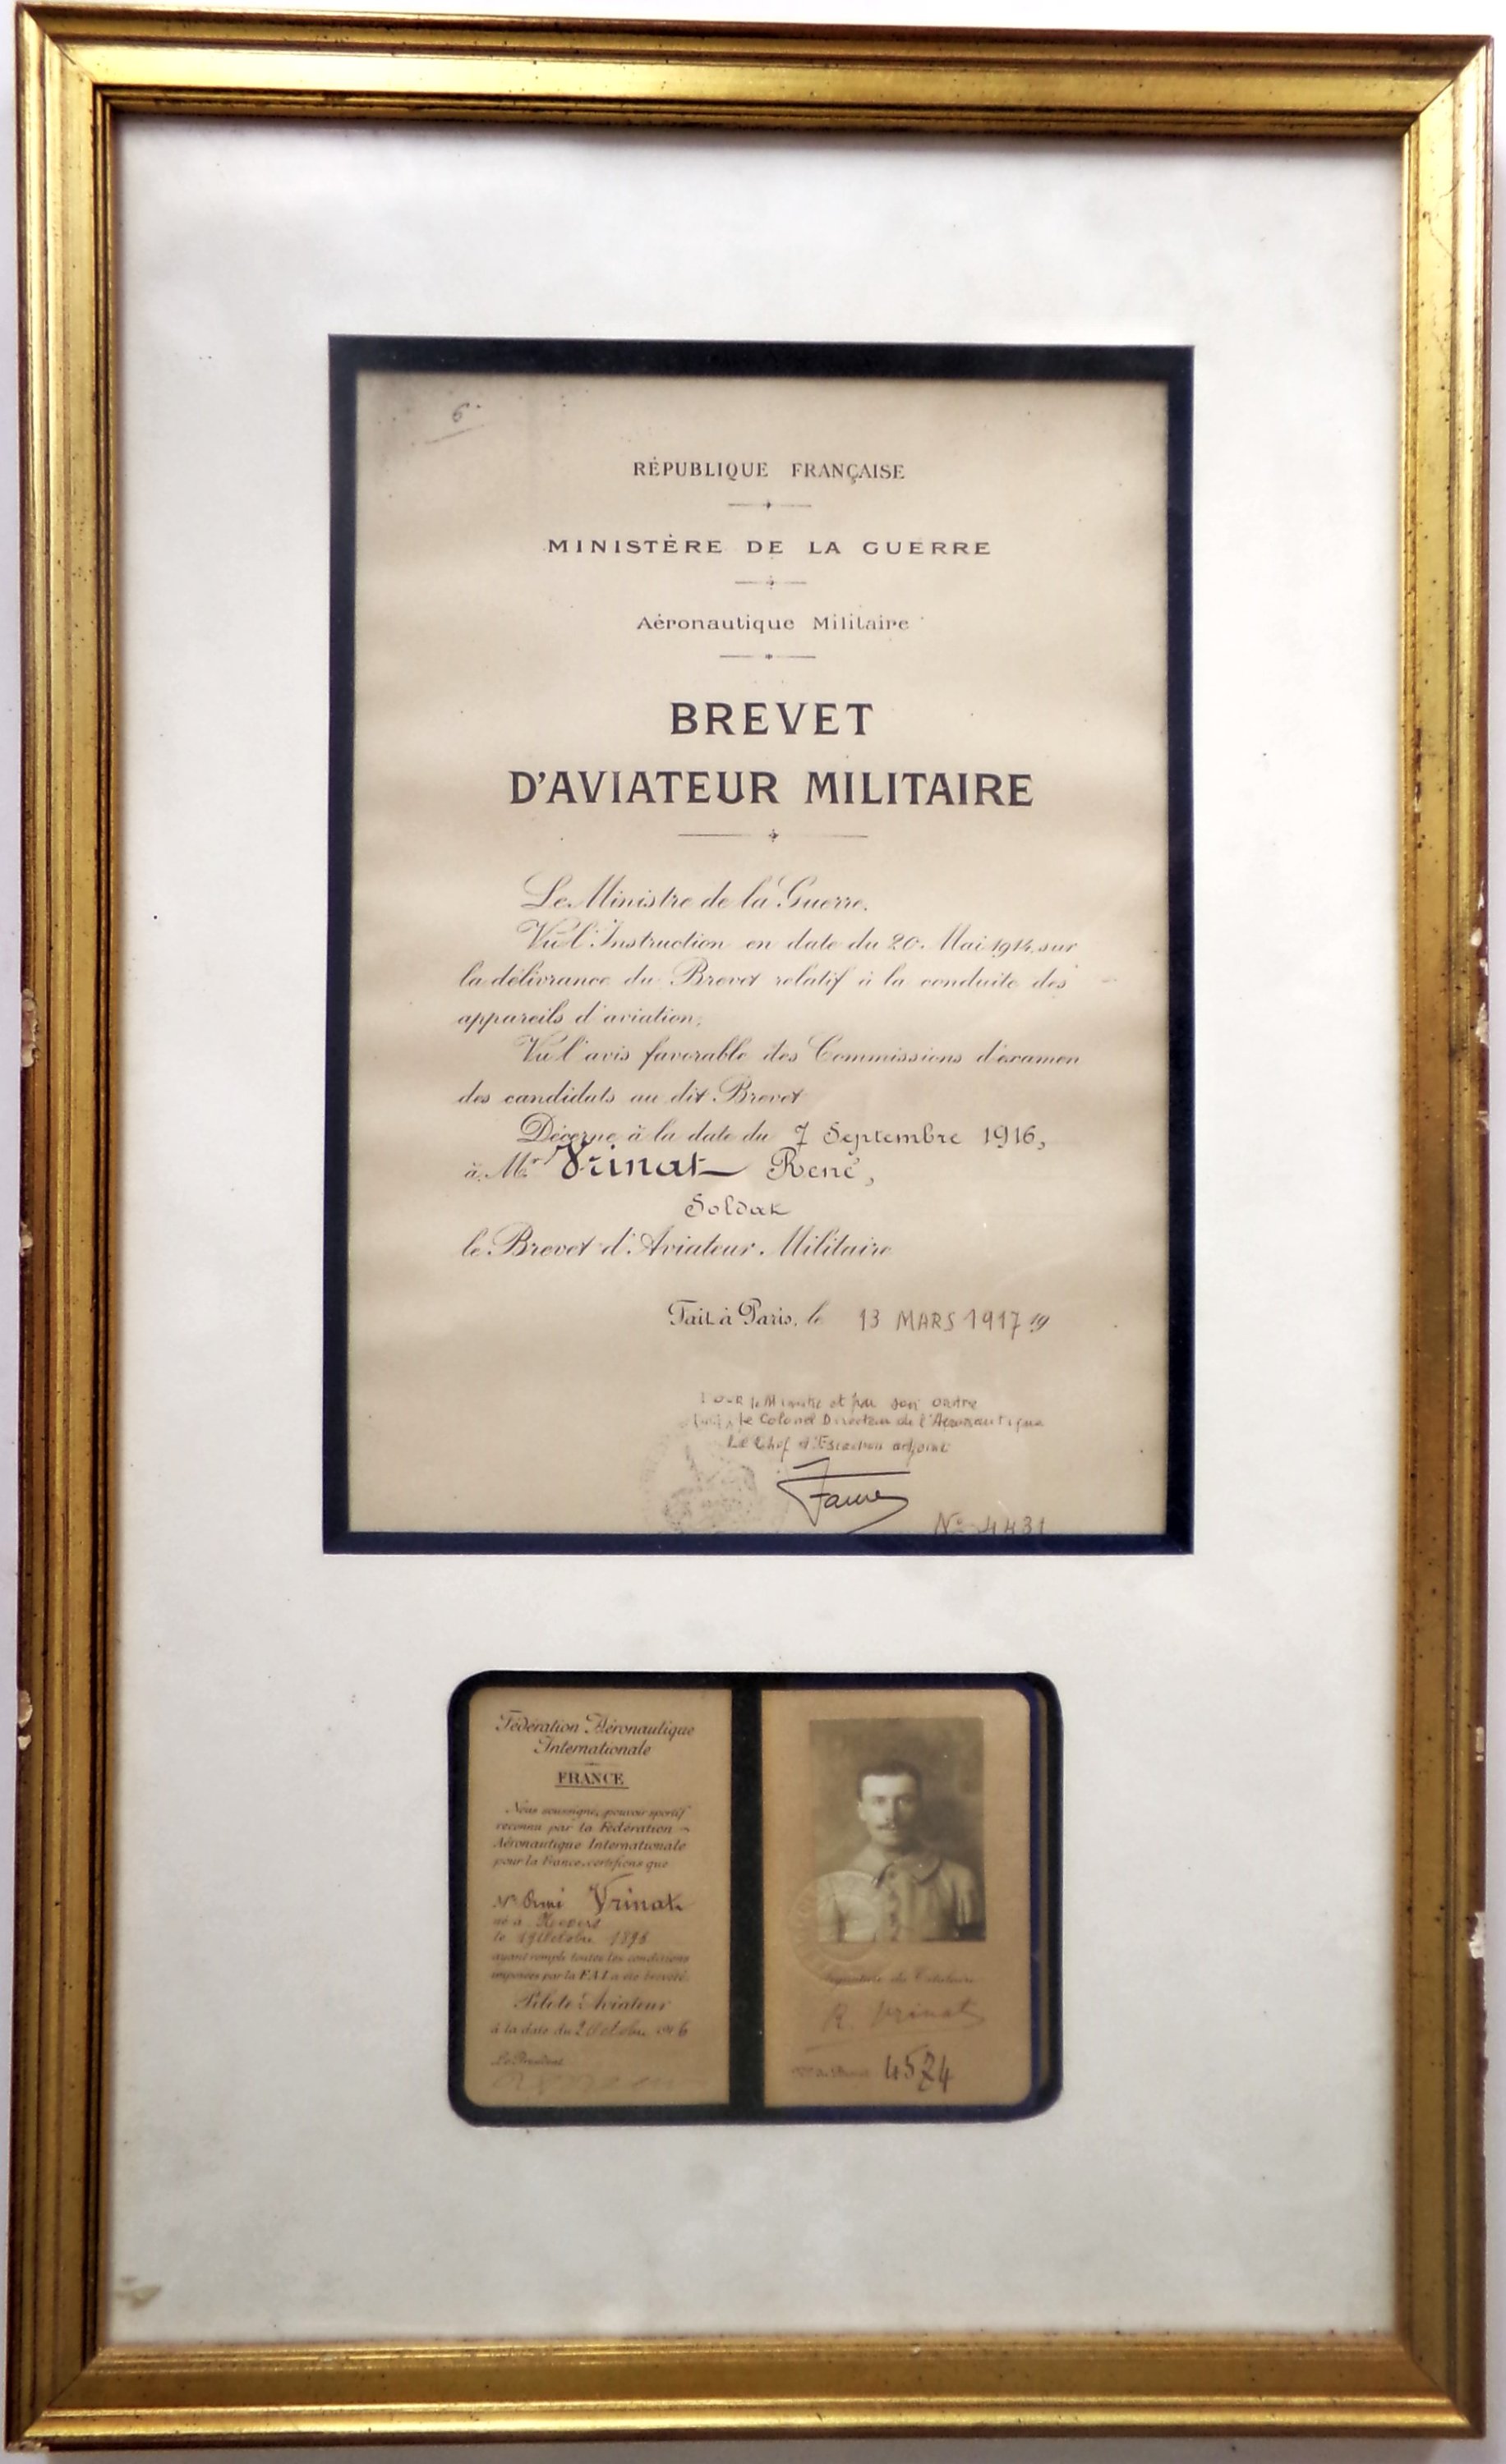 6.
RÉPUBLIQUE FRANÇAISE
MINISTÈRE DE LA GUERRE
Aéronautique Militaire
BREVET
D'AVIATEUR MILITAIRE
Le Ministre de la Guerre,
Vu l'Instruction en date du 20 Mai 1914, sur
la délivrance du Brevet relatif à la conduite des
appareils d'aviation;
Vu l'avis favorable des Commissions d'examen
des candidats au dit Brevet
Décerne à la date du 7 Septembre 1916,
à Mr Vrinat René,
Soldat
le Brevet d'Aviateur Militaire
Fait à Paris, le 13 MARS 1917 19
POUR le Ministre et par son ordre
le Colonel Directeur de l'Aéronautique
Le Chef d'Escadron adjoint
Faure
No 4431
Fédération Aéronautique
Internationale
FRANCE
Nous soussigné, pouvoir sportif
reconnu par la Fédération
Aéronautique Internationale
pour la France, certifions que
Mr Vrinat
né à
le 19 Octobre
ayant rempli toutes les conditions
imposées par la F.A.I. a été breveté
Pilote-Aviateur
à la date du 2 Octobre 1916
Le Président
Signature du Titulaire
R. Vrinat
4574